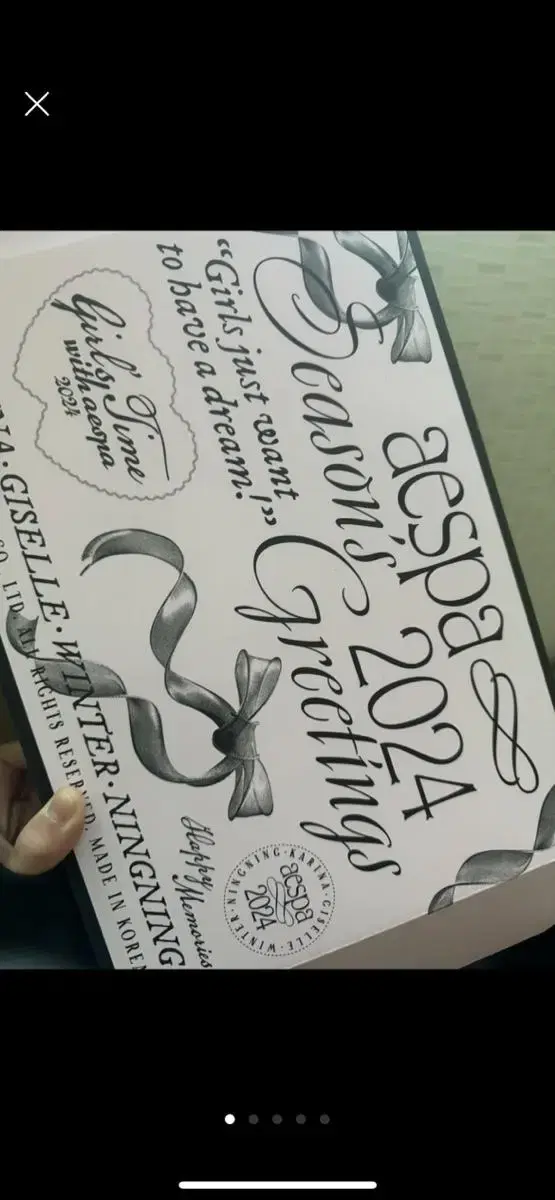 aespa 2024
Season's Greetings
"Girls just want
to have a dream!"
Girls' Time
with aespa
2024
Happy
Memories
aespa
2024
NINGNING·KARINA·GISELLE·WINTER·
GISELLE·WINTER·NINGNING
CO., LTD. ALL RIGHTS RESERVED. MADE IN KOREA